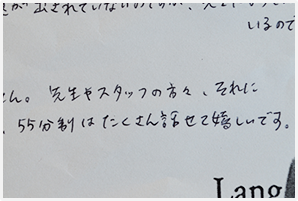 が出されていないのですが、先生
いるので
せん。先生やスタッフの方々、それに
、55分制はたくさん話せて嬉しいです。
Lang